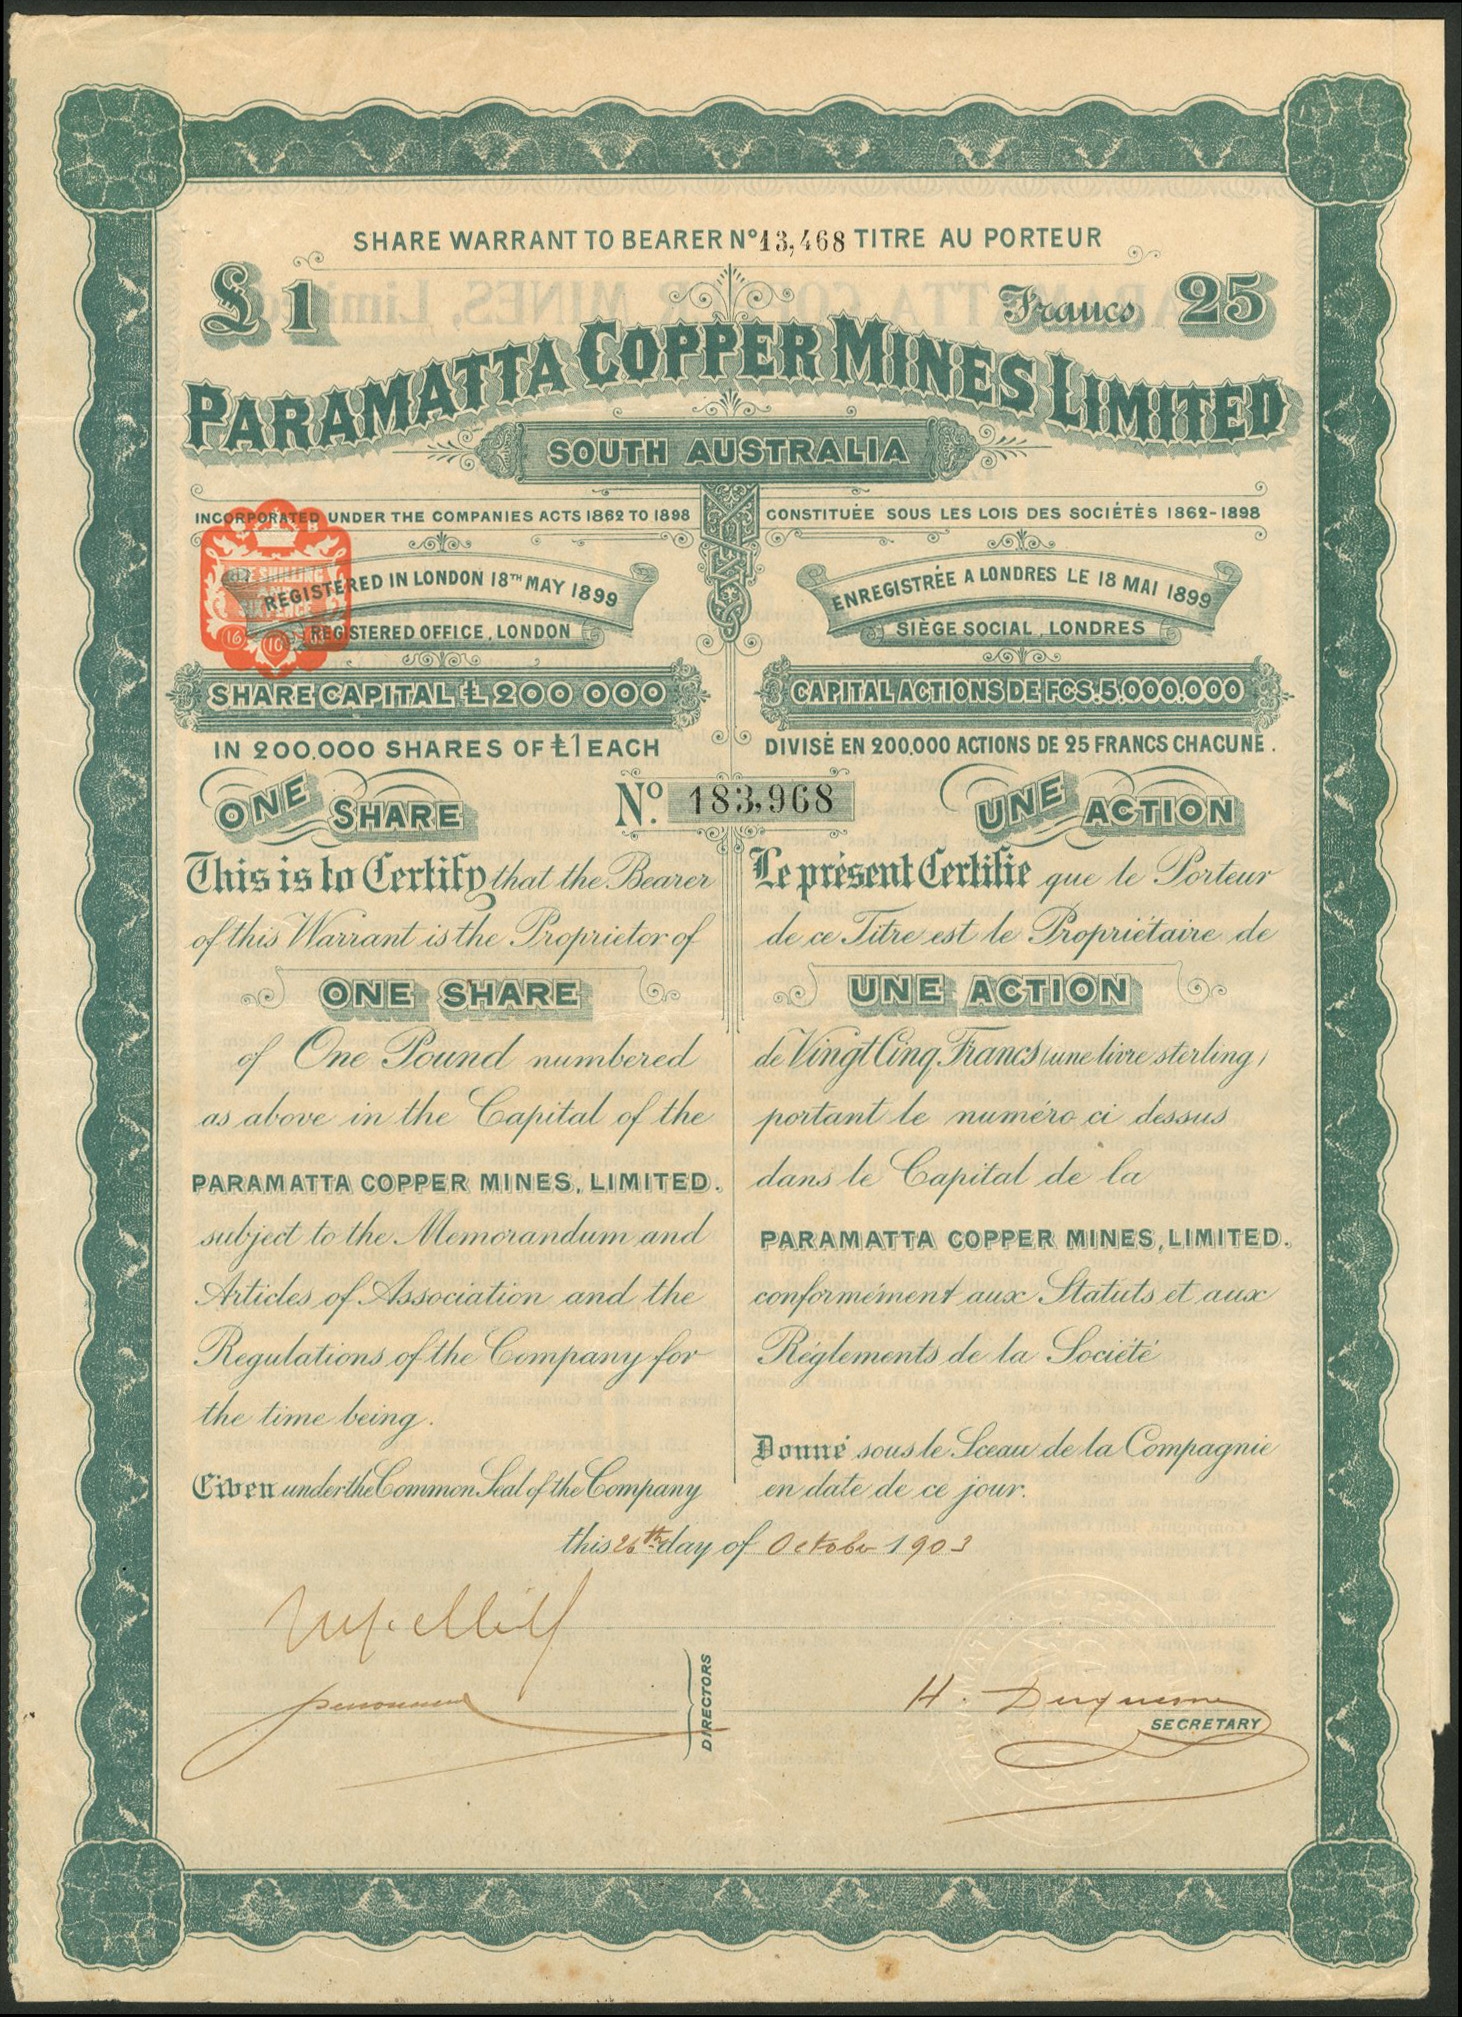 SHARE WARRANT TO BEARER Nº 13,468 TITRE AU PORTEUR
£1
Francs 25
PARAMATTA COPPER MINES LIMITED
SOUTH AUSTRALIA
INCORPORATED UNDER THE COMPANIES ACTS 1862 TO 1898
REGISTERED IN LONDON 18TH MAY 1899
REGISTERED OFFICE, LONDON
SHARE CAPITAL £200 000
IN 200.000 SHARES OF £1 EACH
CONSTITUÉE SOUS LES LOIS DES SOCIÉTÉS 1862-1898
ENREGISTRÉE A LONDRES LE 18 MAI 1899
SIÈGE SOCIAL, LONDRES
CAPITAL ACTIONS DE FCS.5.000.000
DIVISÉ EN 200,000 ACTIONS DE 25 FRANCS CHACUNE.
SHILLING
16 10
ONE SHARE
Nº. 183,968
UNE ACTION
This is to Certify that the Bearer
of this Warrant is the Proprietor of
ONE SHARE
of One Pound numbered
as above in the Capital of the
PARAMATTA COPPER MINES, LIMITED.
subject to the Memorandum and
Articles of Association and the
Regulations of the Company for
the time being.
Given under the Common Seal of the Company
Le présent Certifie que le Porteur
de ce Titre est le Propriétaire de
UNE ACTION
de Vingt Cinq Francs (une livre sterling)
portant le numéro ci dessus
dans le Capital de la
PARAMATTA COPPER MINES, LIMITED.
conformément aux Statuts et aux
Réglements de la Société
Donné sous le Sceau de la Compagnie
en date de ce jour.
this 26th day of October 1903
DIRECTORS
H. Duquesne
SECRETARY